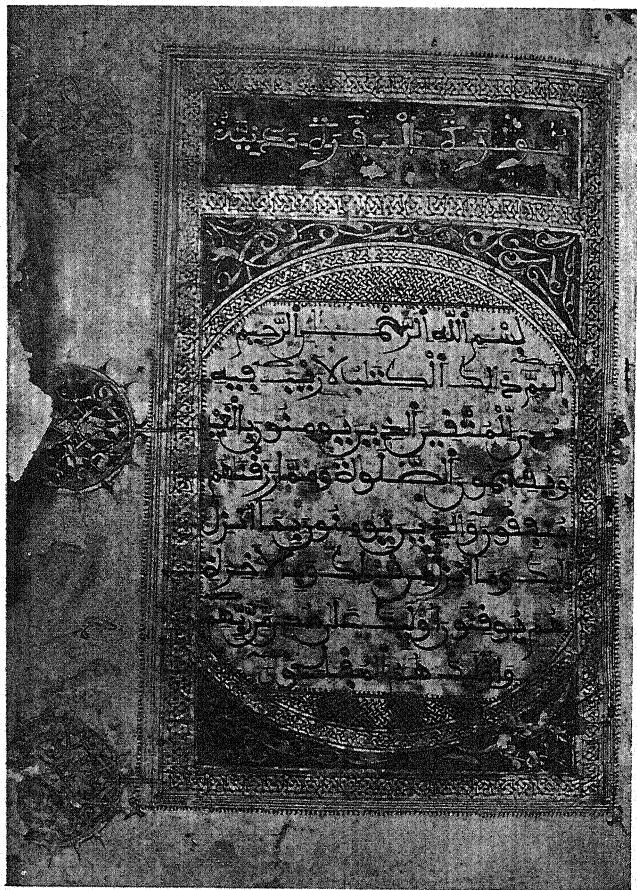 سورة البقرة مدنية
بسم الله الرحمن الرحيم
الم ذلك الكتب لا ريب فيه
هدى للمتقين الذين يومنون بالغيب
ويقيمون الصلوة ومما رزقنهم
ينفقون والذين يومنون بما أنزل
إليك وما أنزل من قبلك وبالاخرة
هم يوقنون أوليك على هدى من ربهم
وأوليك هم المفلحون